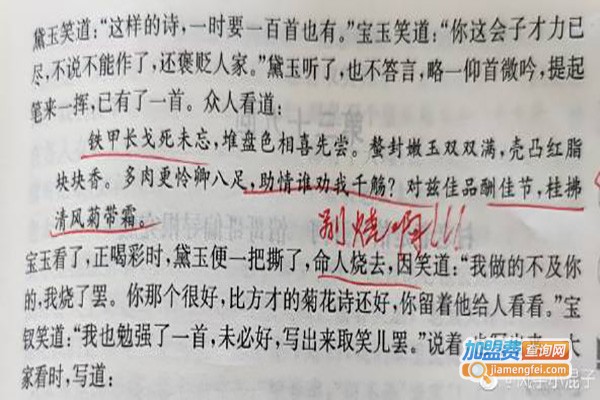 黛玉笑道:“这样的诗,一时要一百首也有。”宝玉笑道:“你这会子才力已
尽,不说不能作了,还褒贬人家。”黛玉听了,也不答言,略一仰首微吟,提起
笔来一挥,已有了一首。众人看道:
铁甲长戈死未忘,堆盘色相喜先尝。螯封嫩玉双双满,壳凸红脂
块块香。多肉更怜卿八足,助情谁劝我千觞?对兹佳品酬佳节,桂拂
清风菊带霜。
别烧啊!!!
宝玉看了,正喝彩时,黛玉便一把撕了,命人烧去,因笑道:“我做的不及你
的,我烧了罢。你那个很好,比方才的菊花诗还好,你留着他给人看看。”宝
钗笑道:“我也勉强了一首,未必好,写出来取笑儿罢。”说着
大
家看时,写道:
加盟费查询网
jiamengfei.com